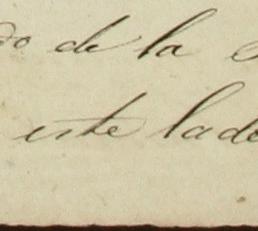 do de la
este lado